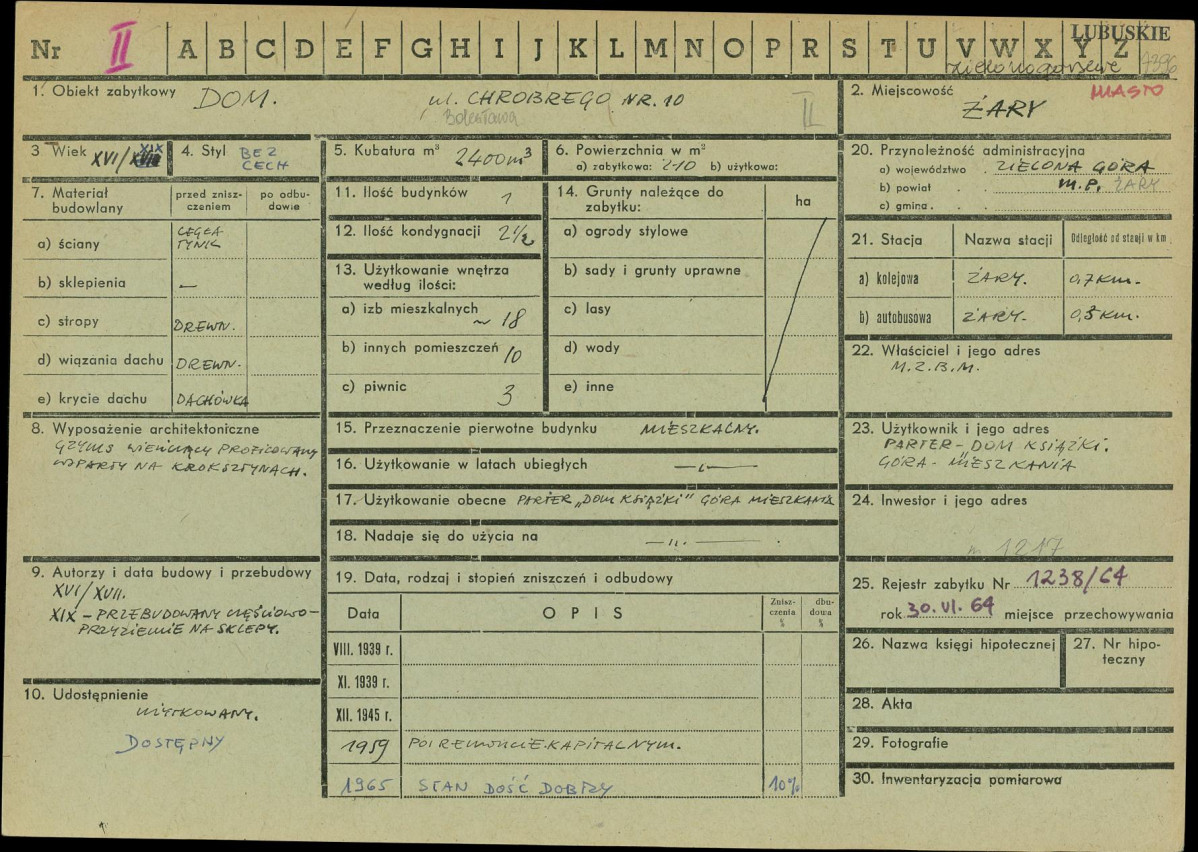 LUBUSKIE
Nr II A B C D E F G H I J K L M N O P R S T U V W X Y Z
zielonogórskie 4396
1. Obiekt zabytkowy DOM. ul. CHROBREGO NR. 10
Bolesława II
2. Miejscowość MIASTO
ŻARY
3 Wiek XVI/XVII XIX
4. Styl BEZ
CECH
5. Kubatura m³ 2400m³
6. Powierzchnia w m²
a) zabytkowa: 210 b) użytkowa:
20. Przynależność administracyjna
a) województwo ZIELONA GÓRA
b) powiat M.P. ŻARY
c) gmina
7. Materiał
budowlany
przed znisz-
czeniem
po odbu-
dowie
a) ściany CEGŁA
TYNK
b) sklepienia —
c) stropy DREWN.
d) wiązania dachu DREWN.
e) krycie dachu DACHÓWKA
11. Ilość budynków 1
12. Ilość kondygnacji 2½
13. Użytkowanie wnętrza
według ilości:
a) izb mieszkalnych ~ 18
b) innych pomieszczeń 10
c) piwnic 3
14. Grunty należące do
zabytku:
ha
a) ogrody stylowe
b) sady i grunty uprawne
c) lasy
d) wody
e) inne
21. Stacja Nazwa stacji Odległość od stacji w km
a) kolejowa ŻARY. 0,7 KM.
b) autobusowa ŻARY. 0,8 KM.
22. Właściciel i jego adres
M.Z.B.M.
8. Wyposażenie architektoniczne
GZYMS WIEŃCZĄCY PROFILOWANY
WSPARTY NA KROKSZTYNACH.
15. Przeznaczenie pierwotne budynku MIESZKALNY.
16. Użytkowanie w latach ubiegłych —„—
17. Użytkowanie obecne PARTER „DOM KSIĄŻKI" GÓRA MIESZKANIA
18. Nadaje się do użycia na —„—
23. Użytkownik i jego adres
PARTER - DOM KSIĄŻKI.
GÓRA - MIESZKANIA
24. Inwestor i jego adres
1217
9. Autorzy i data budowy i przebudowy
XVI/XVII.
XIX - PRZEBUDOWANY CZĘŚCIOWO -
PRZYZIEMIE NA SKLEPY.
10. Udostępnienie
UŻYTKOWANY.
DOSTĘPNY
19. Data, rodzaj i stopień zniszczeń i odbudowy
Data OPIS Znisz-
czenia
%
dbu-
dowa
%
VIII. 1939 r.
XI. 1939 r.
XII. 1945 r.
1959 PO REMONCIE KAPITALNYM.
1965 STAN DOŚĆ DOBRY 10%
25. Rejestr zabytku Nr 1238/64
rok 30. VI. 64 miejsce przechowywania
26. Nazwa księgi hipotecznej
27. Nr hipo-
teczny
28. Akta
29. Fotografie
30. Inwentaryzacja pomiarowa